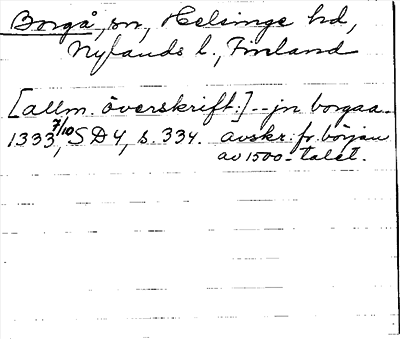 Borgå, sn, Helsinge hd,
Nylands l., Finland
[allm. överskrift:]--jn borgaa--
1333 7/10, SD 4, s. 334. avskr. fr. början
av 1500-talet.